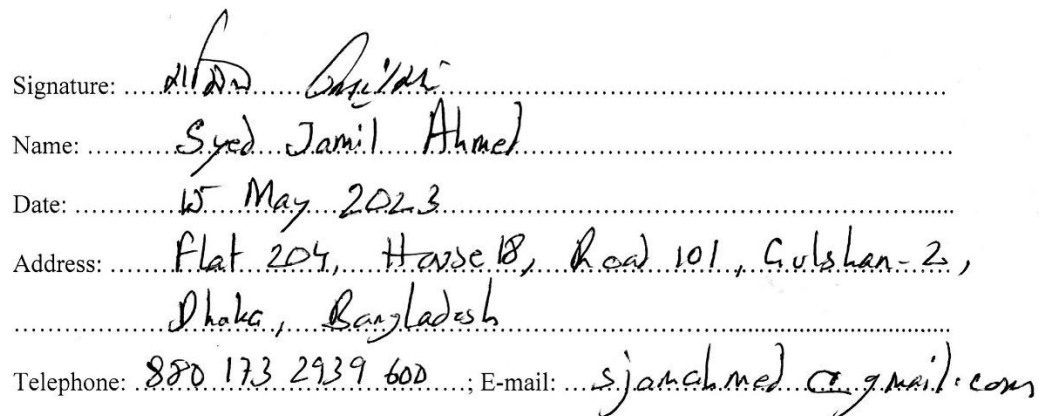 Signature: ....................
Name: .......... Syed Jamil Ahmed ....................
Date: .......... 15 May 2023 ....................
Address: .......... Flat 204, House 18, Road 101, Gulshan-2,
.......... Dhaka, Bangladesh ....................
Telephone: 880 173 2939 600 ....; E-mail: ... sjamahmed@gmail.com